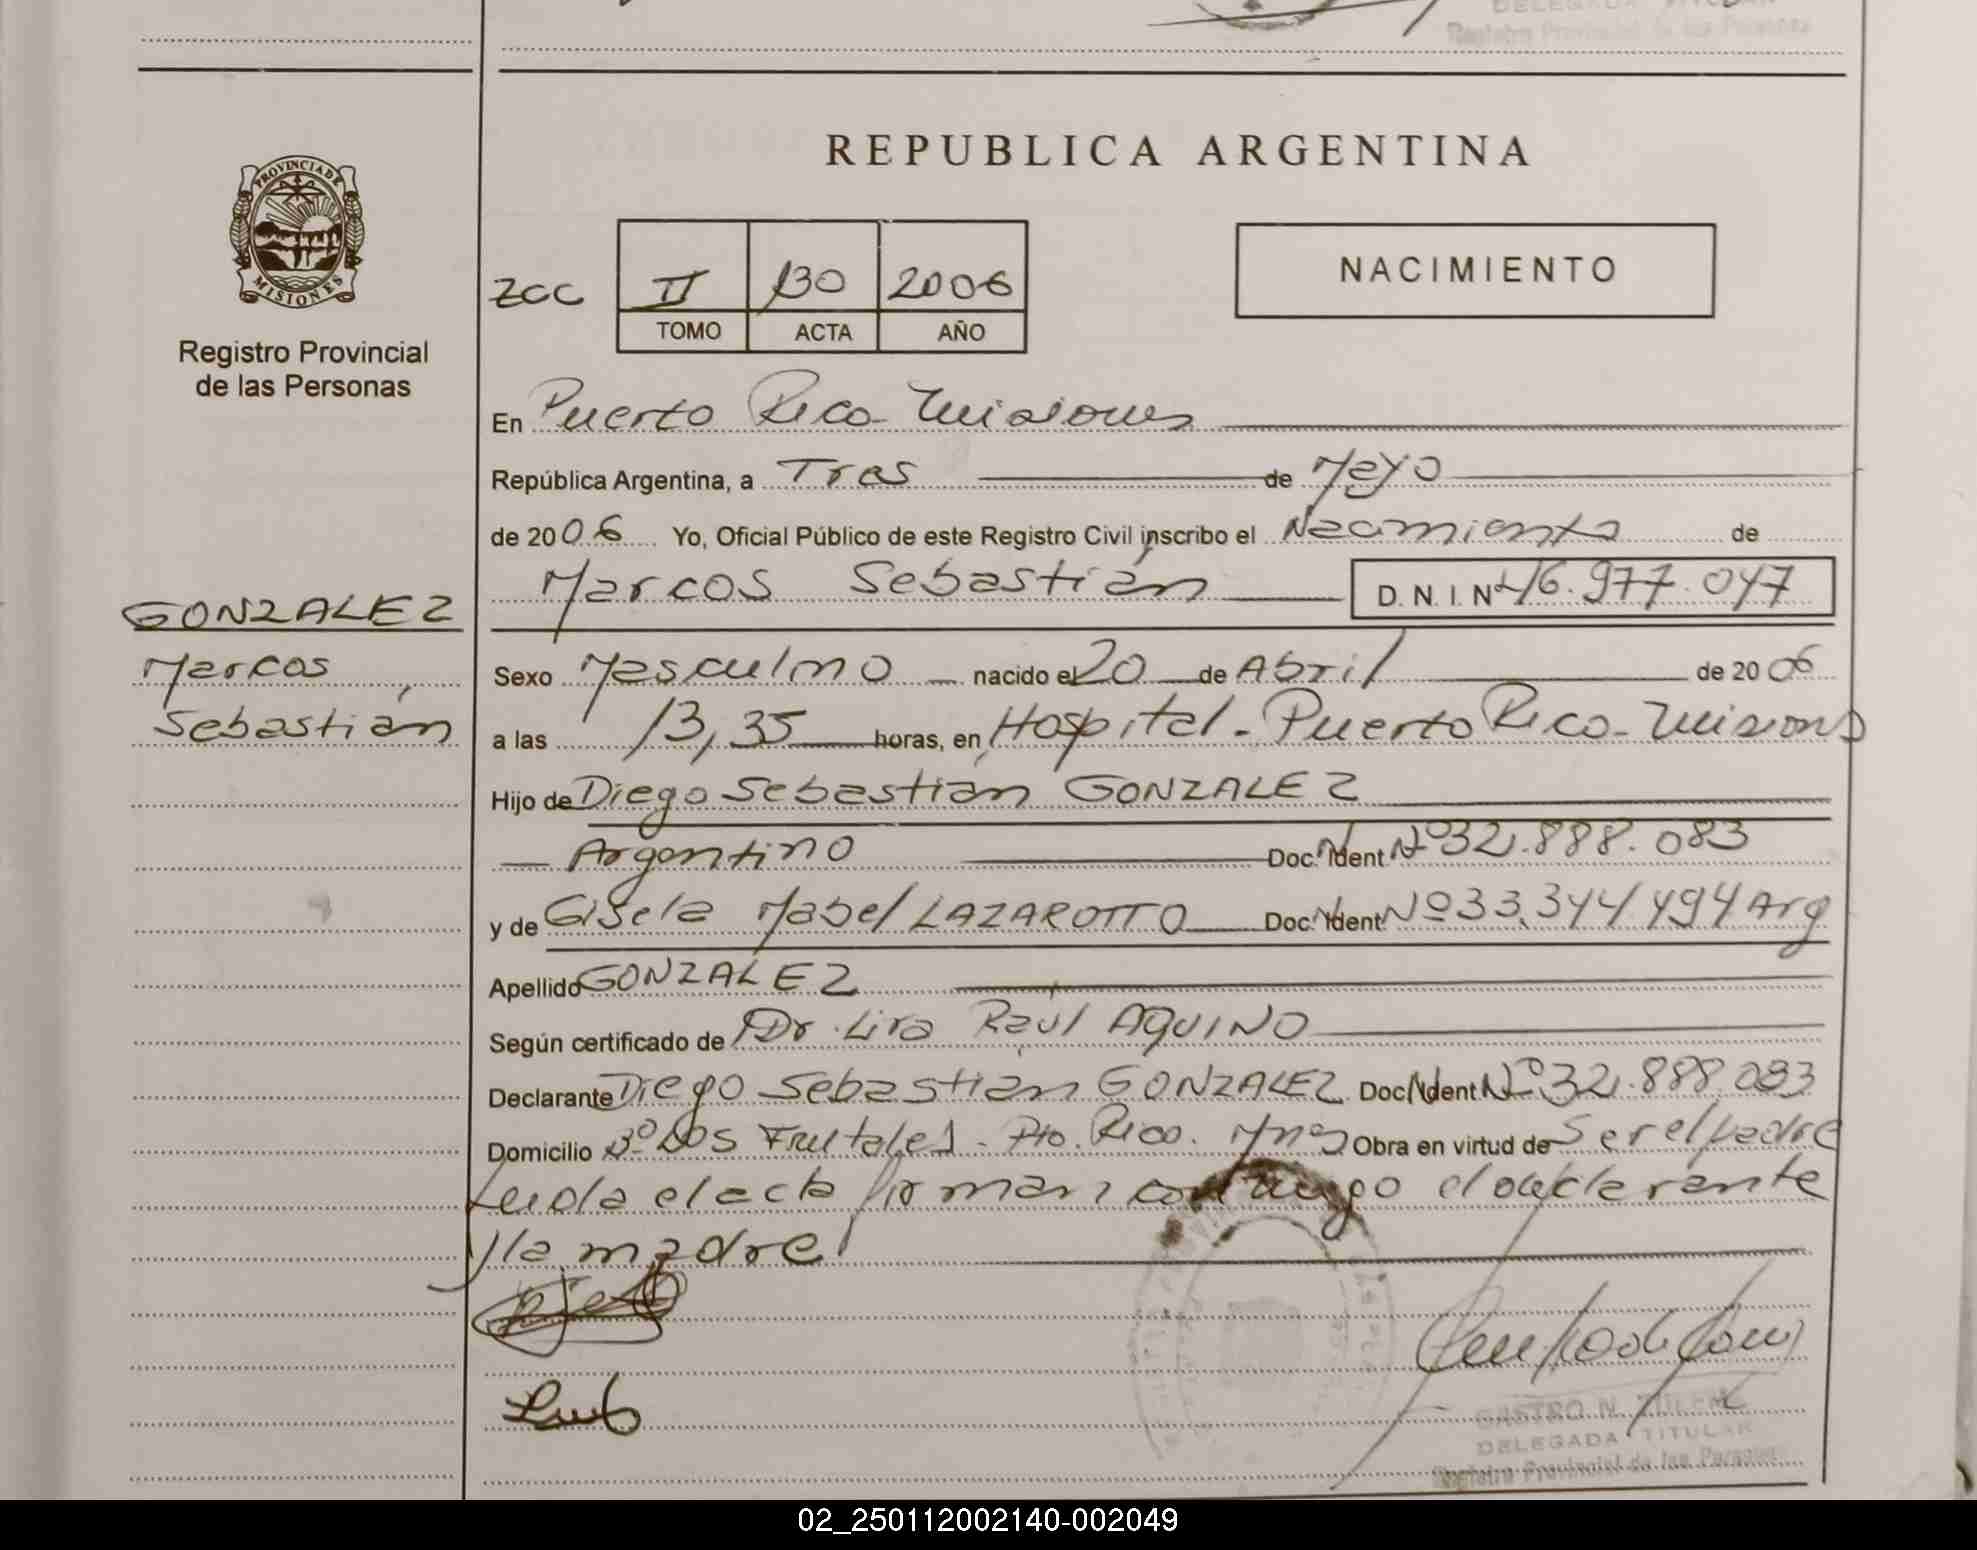 DELEGADA TITULAR
Registro Provincial de las Personas
REPUBLICA ARGENTINA
PROVINCIA DE
MISIONES
Registro Provincial
de las Personas
ZCC
II 130 2006
TOMO ACTA AÑO
NACIMIENTO
En Puerto Rico - Misiones
República Argentina, a Tres de Mayo
de 2006 Yo, Oficial Público de este Registro Civil inscribo el Nacimiento de
Marcos Sebastián D.N.I. Nº 46.977.047
GONZALEZ
Marcos
Sebastián
Sexo Masculino nacido el 20 de Abril de 2006
a las 13,35 horas, en Hospital - Puerto Rico - Misiones
Hijo de Diego Sebastián GONZALEZ
Argentino Doc. Ident. Nº 32.888.083
y de Gisela Mabel LAZAROTTO Doc. Ident. Nº 33.344.494 Arg
Apellido GONZALEZ
Según certificado de Dr. Lira Raúl AQUINO
Declarante Diego Sebastián GONZALEZ Doc. Ident. Nº 32.888.083
Domicilio Bº Los Frutales - Pto. Rico. Mnes Obra en virtud de Ser el padre
Leida el acta firman conmigo el declarante
y la madre
DELEGADA TITULAR
Registro Provincial de las Personas
02_250112002140-002049